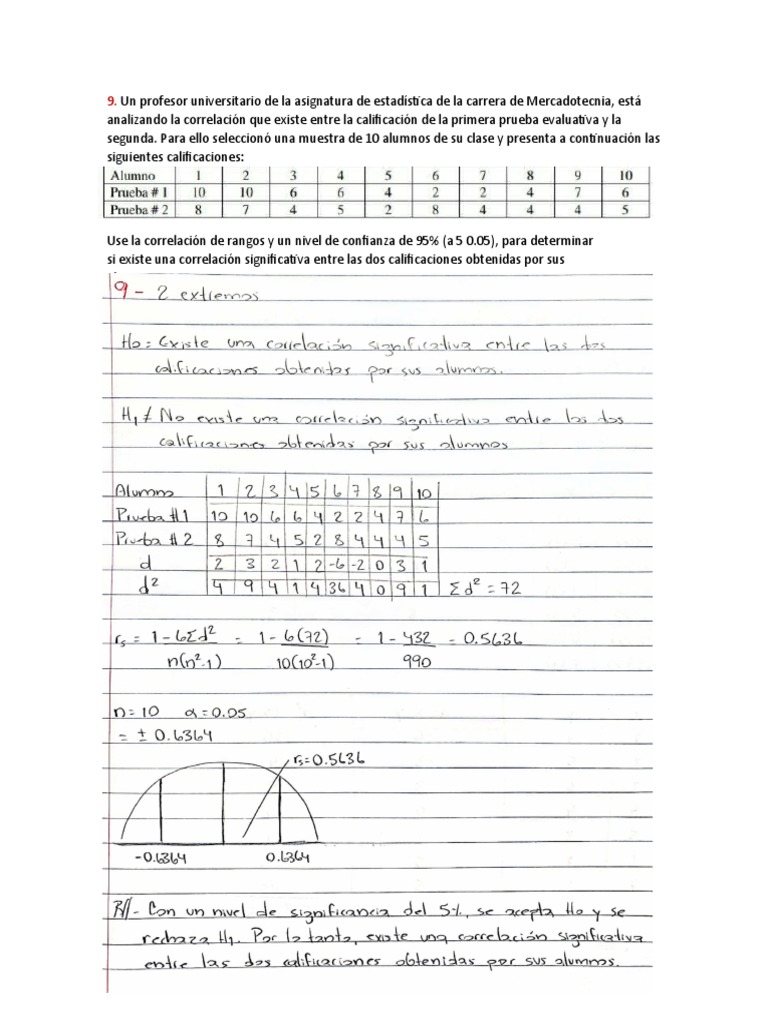 9. Un profesor universitario de la asignatura de estadística de la carrera de Mercadotecnia, está
analizando la correlación que existe entre la calificación de la primera prueba evaluativa y la
segunda. Para ello seleccionó una muestra de 10 alumnos de su clase y presenta a continuación las
siguientes calificaciones:
Alumno 1 2 3 4 5 6 7 8 9 10
Prueba # 1 10 10 6 6 4 2 2 4 7 6
Prueba # 2 8 7 4 5 2 8 4 4 4 5
Use la correlación de rangos y un nivel de confianza de 95% (a 5 0.05), para determinar
si existe una correlación significativa entre las dos calificaciones obtenidas por sus
9 - 2 extremos
Ho = Existe una correlación significativa entre las dos
calificaciones obtenidas por sus alumnos.
H₁ ≠ No existe una correlación significativa entre las dos
calificaciones obtenidas por sus alumnos
Alumno 1 2 3 4 5 6 7 8 9 10
Prueba #1 10 10 6 6 4 2 2 4 7 6
Prueba # 2 8 7 4 5 2 8 4 4 4 5
d 2 3 2 1 2 -6 -2 0 3 1
d² 4 9 4 1 4 36 4 0 9 1 Σd² = 72
rs = 1 - 6Σd² = 1 - 6(72) = 1 - 432 = 0.5636
n(n²-1) 10(10²-1) 990
n=10 α=0.05
= ± 0.6364
rs=0.5636
-0.6364 0.6364
R//- Con un nivel de significancia del 5%, se acepta Ho y se
rechaza H₁. Por lo tanto, existe una correlación significativa
entre las dos calificaciones obtenidas por sus alumnos.